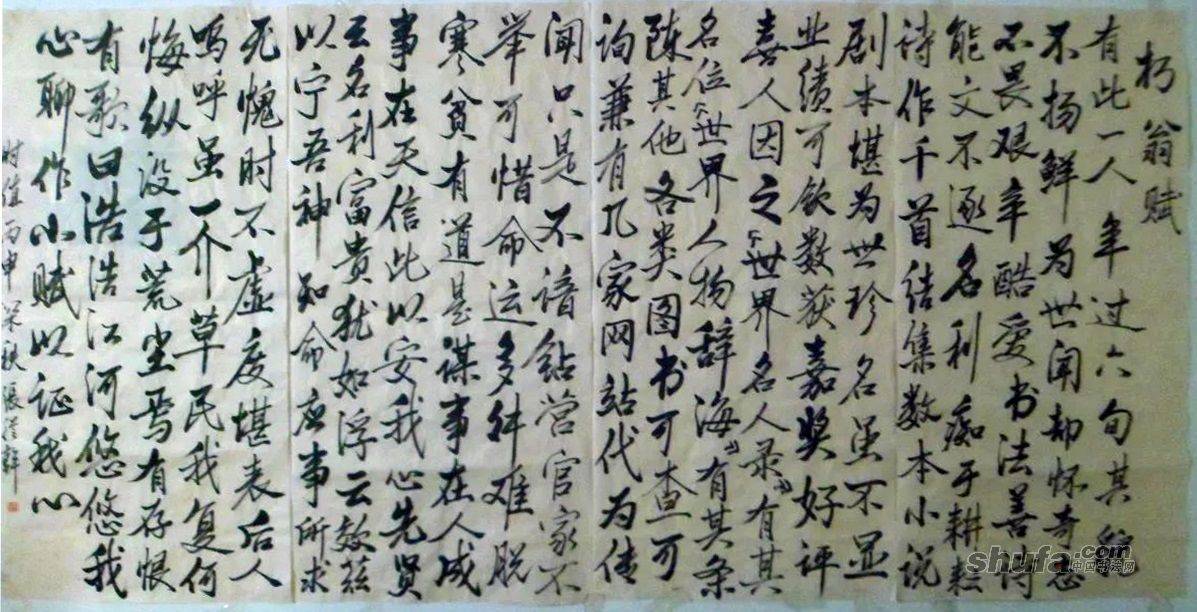 朽翁赋
有此一人年过六旬其貌
不扬鲜为世闻却怀奇志
不畏艰辛酷爱书法善诗
能文不逐名利痴于耕耘
诗作千首结集数本小说
剧本堪为世珍名虽不显
业绩可钦数获嘉奖好评
喜人因之《世界名人录》有其
名位《世界人物辞海》有其条
陈其他各类图书可查可
询兼有几家网站代为传
闻只是不谙钻营官家不
举可惜命运多舛难脱
寒贫有道是谋事在人成
事在天信此以安我心先贤
云名利富贵犹如浮云效兹
以宁吾神知命应事所求
死愧时不虚度堪表后人
呜呼虽一介草民我复何
悔纵没于荒尘焉有存恨
有歌曰浩浩江河悠悠我
心聊作小赋以证我心
时值丙申深秋张
shufa.com
中国书法网